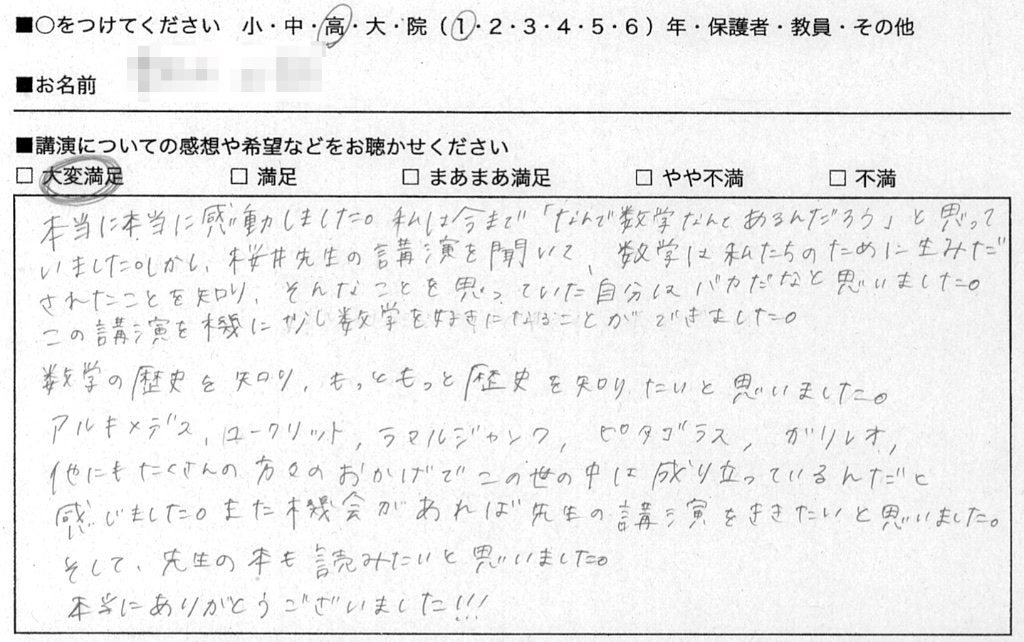 ■○をつけてください 小・中・高・大・院（1・2・3・4・5・6）年・保護者・教員・その他
■お名前
■講演についての感想や希望などをお聴かせください
□ 大変満足 □ 満足 □ まあまあ満足 □ やや不満 □ 不満
本当に本当に感動しました。私は今まで「なんで数学なんてあるんだろう」と思って
いました。しかし、桜井先生の講演を聞いて、数学は私たちのために生みだ
されたことを知り、そんなことを思っていた自分はバカだなと思いました。
この講演を機に少し数学を好きになることができました。
数学の歴史を知り、もっともっと歴史を知りたいと思いました。
アルキメデス，ユークリット，ラマルジャンク，ピタゴラス，ガリレオ，
他にもたくさんの方々のおかげでこの世の中は成り立っているんだと
感じました。また機会があれば先生の講演をききたいと思いました。
そして、先生の本も読みたいと思いました。
本当にありがとうございました!!!